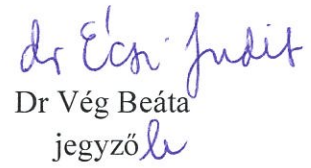 dr Écsi Judit
Dr Vég Beáta
jegyző h